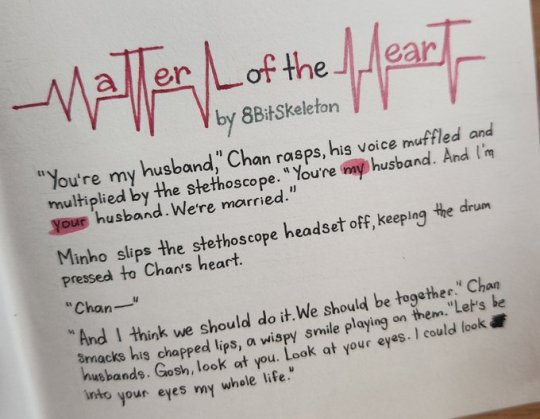 Matter of the Heart
by 8BitSkeleton
"You're my husband," Chan rasps, his voice muffled and
multiplied by the stethoscope. "You're my husband. And I'm
your husband. We're married."
Minho slips the stethoscope headset off, keeping the drum
pressed to Chan's heart.
"Chan—"
"And I think we should do it. We should be together." Chan
smacks his chapped lips, a wispy smile playing on them. "Let's be
husbands. Gosh, look at you. Look at your eyes. I could look
into your eyes my whole life."